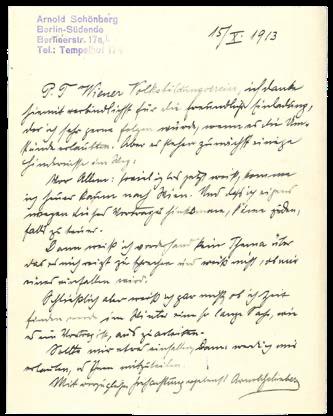 Arnold Schönberg
Berlin-Südende
Berlinerstr. 17a,I.
Tel.: Tempelhof
15/V. 1913
P. T. Wiener Volksbildungsverein, ich danke
hiermit verbindlichst für die freundliche Einladung,
der ich sehr gerne folgen würde, wenn es die Um-
stände erlaubten. Aber es stehen zunächst einige
Hindernisse im Weg:
Vor Allem: soviel ich bis jetzt weiß, komme
ich heuer kaum nach Wien. Und daß ich eigens
wegen dieses Vortrages hinkomme, käme jeden-
falls zu teuer.
Dann weiß ich vorderhand kein Thema über
das es mich reizt zu sprechen und weiß nicht, ob mir
eines einfallen wird.
Schließlich aber weiß ich gar nicht ob ich Zeit
finden werde im Winter eine so lange Sache, wie
es ein Vortrag ist, auszuarbeiten.
Sollte mir etwas einfallen, dann werde ich mir
erlauben, es Ihnen mitzuteilen.
Mit vorzüglicher Hochachtung ergebenst Arnold Schönberg